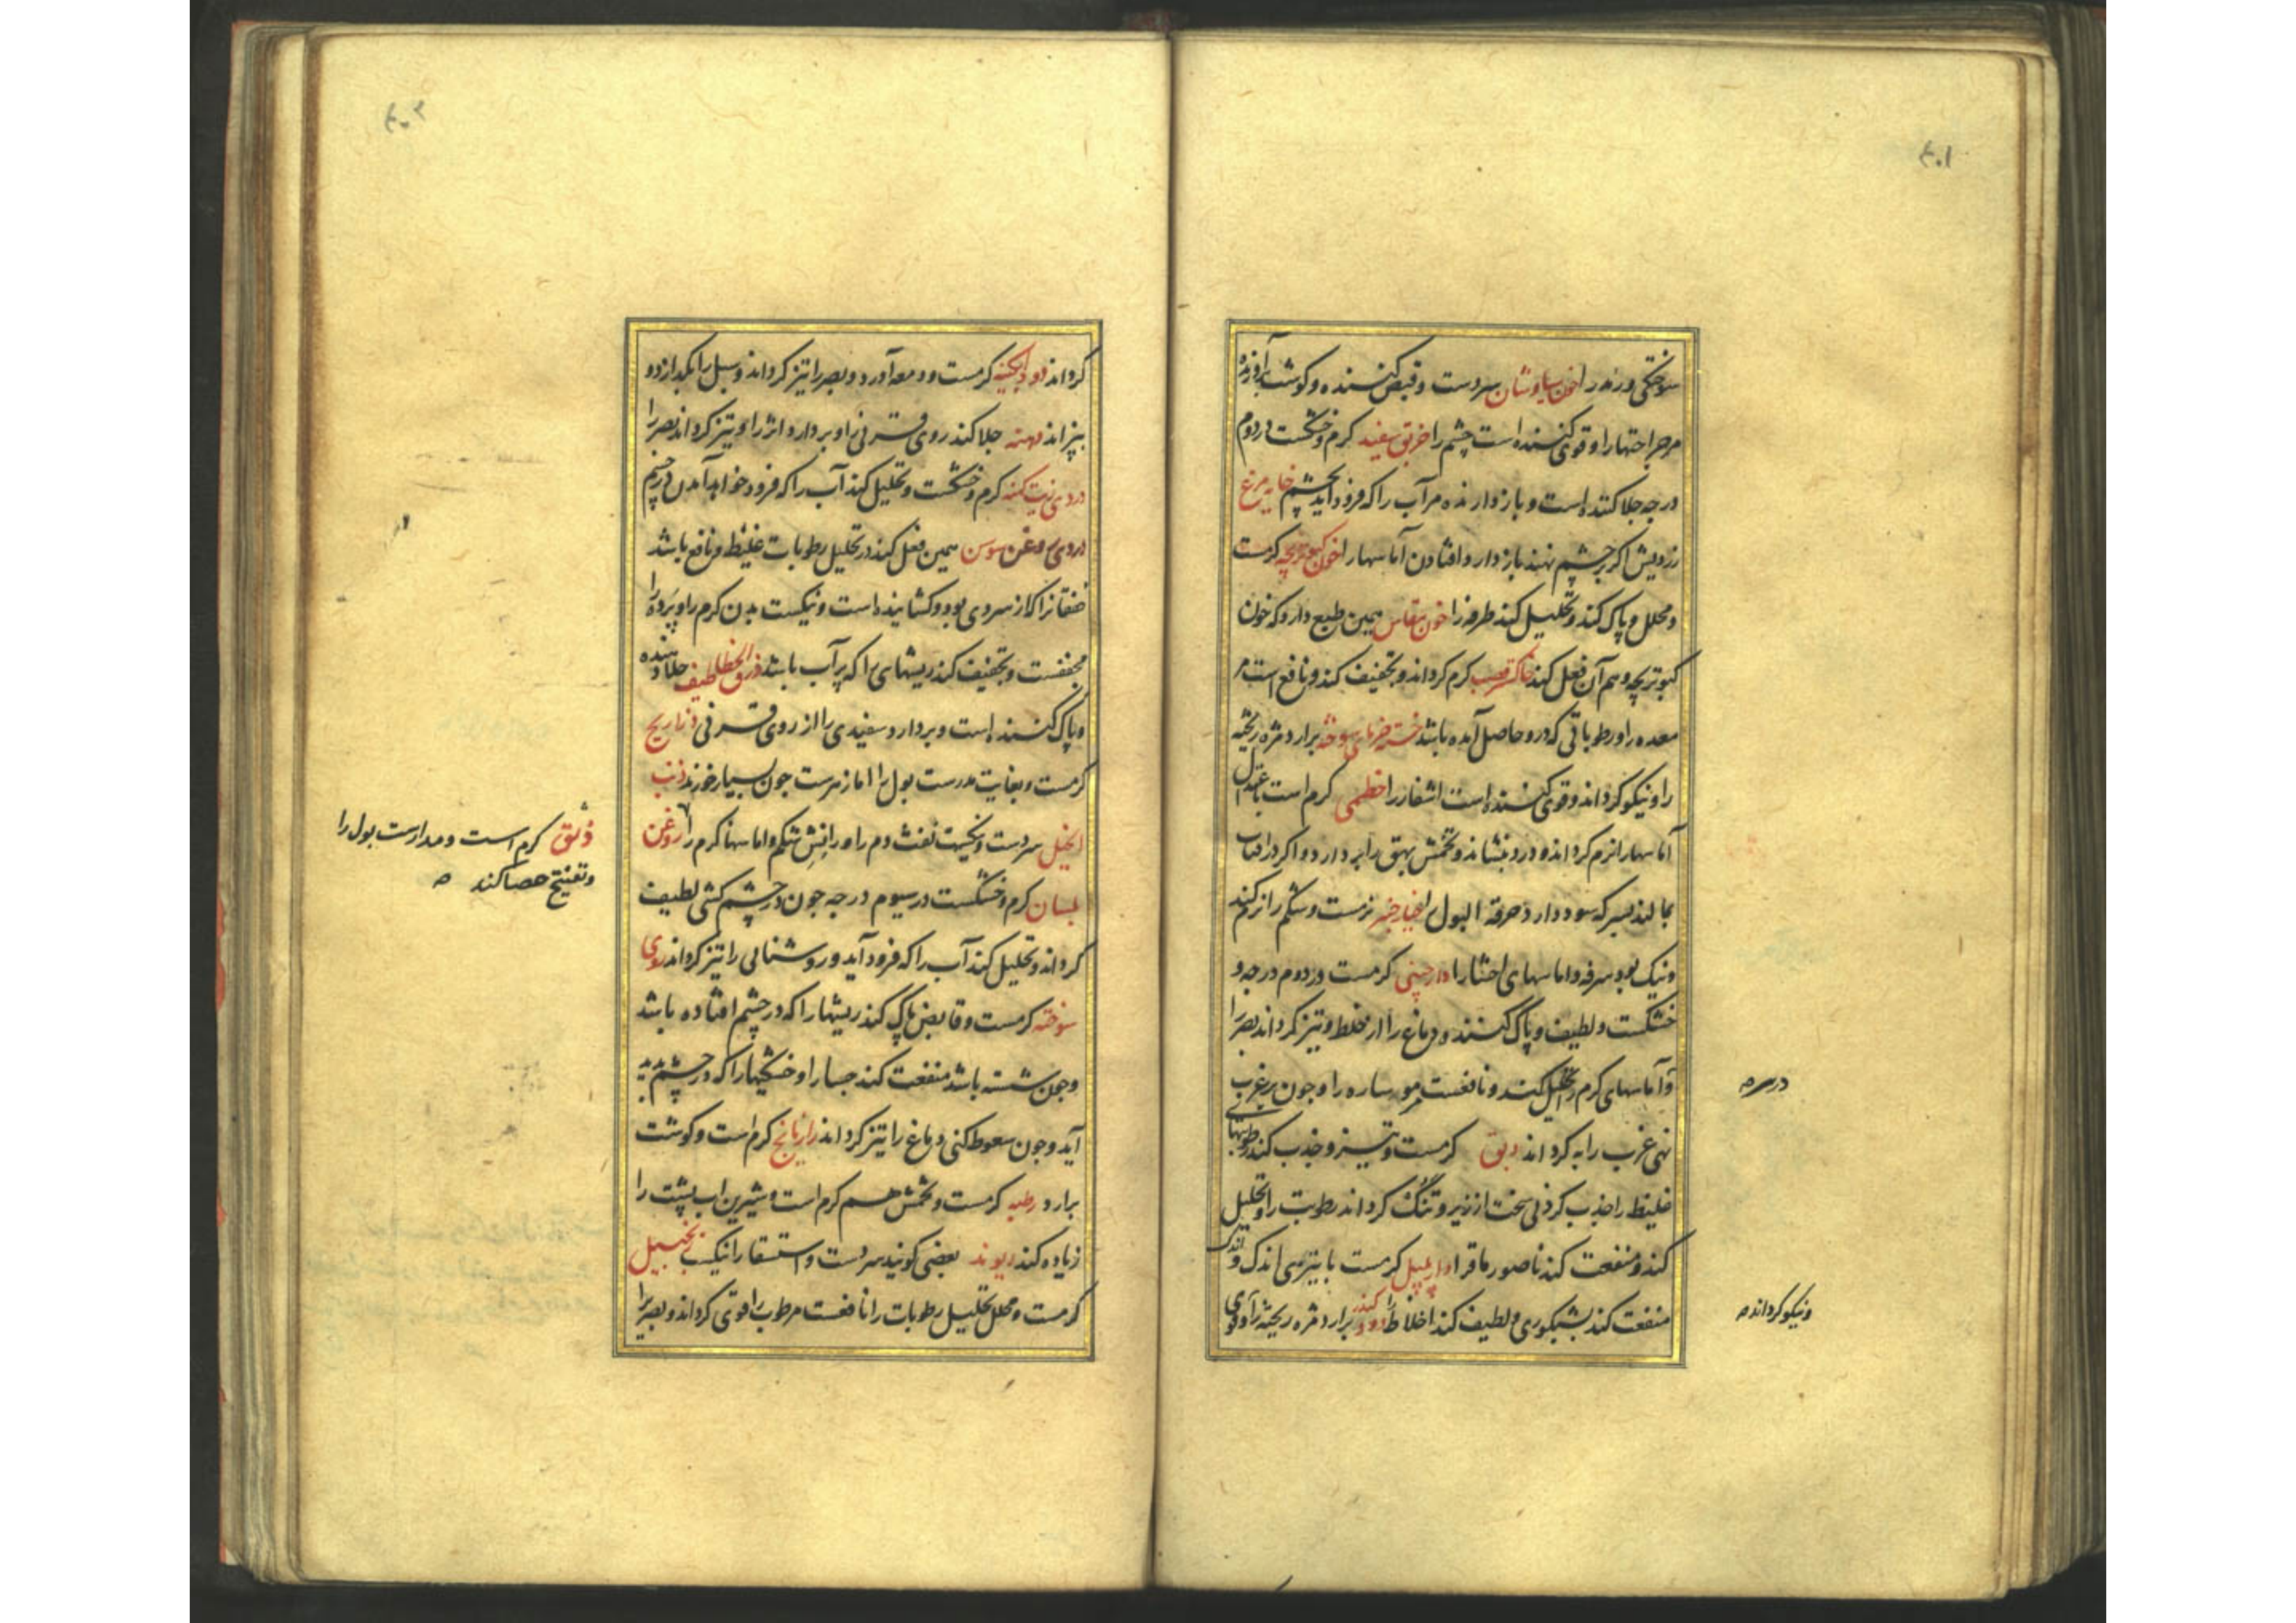 ۴۰۱
سوختگی و رندر را خون سیاوشان سردست و قبض کننده و گوشت آرنده
مرجراحتها را و قوی کننده است چشم را خربق سفید کرم و خشکست در دوم
درجه جلا کننده است و بازدارنده مر آب را که فرود آید بچشم خایه مرغ
زردیش اگر بر چشم نهند بازدارد افتادن آماسها را خون کبوتربچه کرمست
و محلل و پاک کند و تحلیل کند طرفه را خون همین طبع دارد که خون
کبوتربچه و هم آن فعل کند خاکستر قصب کرم گرداند و تجفیف کند و نافع است مر
معده را و رطوباتی که درو حاصل آمده باشد خسته خرمای سوخته برارد مژه ریخته
را و نیکو گرداند و قوی کننده است اشفار را خطمی کرم است باعتدال
آماسها را نرم گرداند و درد بنشاند و تخمش بهق را بردارد و اگر در افتاب
بمالند بسرکه سود دارد حرقة البول را خیارچنبر نرمست و شکم را نرم کند
و نیک بود سرفه و اماسهای احشا را دارچینی کرمست در دوم درجه و
خشکست و لطیف و پاک کننده دماغ را از خلط و تیز گرداند بصر را
و آماسهای کرم را تحلیل کند و نافعست مورساره را و جون بر غرب
درسر صح
نهی غرب را به گرداند دبق کرمست و تیز و جذب کند رطوبتهای
غلیظ را جذب کردنی سخت از زیر و تنک گرداند رطوبت را و تحلیل
کند و منفعت کند ناصور ماق را دارپلپل کرمست با تیزیی اندک و
منفعت کند بشبکوری و لطیف کند اخلاط را دود کندر برارد مژه ریخته را و قوی
و نیکو گرداند صح
۴۰۲
گرداند دود آبگینه کرمست و دمعه آورد و بصر را تیز گرداند و سبل را بگدازد و
بپزاند دهنه جلا کند روی قرنی را و بردارد اثر را و تیز گرداند بصر را
دردی زیت کهنه کرم و خشکست و تحلیل کند آب را که فرود خواهد آمدن در چشم
دردی روغن سوسن همین فعل کند در تحلیل رطوبات غلیظ و نافع باشد
خفقان را که از سردی بود و گشاینده است و نیکست بدن کرم را و پرده را
مجففست و تجفیف کند ریشهای را که پر آب باشد ذرق الخطاطیف جلا دهنده
و پاک کننده است و بردارد سفیدی را از روی قرنی ذراریح
کرمست و بغایت مدرست بول را اما زهرست جون بسیار خورند ذنب
الخیل سردست و نیکست نفث دم را و رانش شکم و اماسها کرم را روغن
ذبق کرم است و مدارست بول را
و تفتیح حصا کند صح
بلسان کرم و خشکست در سیوم درجه جون در چشم کشی لطیف
گرداند و تحلیل کند آب را که فرود آید و روشنائی را تیز گرداند روی
سوخته کرمست و قابض پاک کند ریشها را که در چشم افتاده باشد
و جون شسته باشد منفعت کند جسا را و خشکیها را که در چشم پدید
آید و جون سعوط کنی دماغ را تیز گرداند رازیانج کرم است و گوشت
برارد رطبه کرمست و تخمش هم کرم است و شیرین اب پشت را
زیاده کند ریوند بعضی گویند سردست و استسقا را نیکست زنجبیل
کرمست و محلل تحلیل رطوبات را نافعست مرطوب را قوی گرداند و بصر را